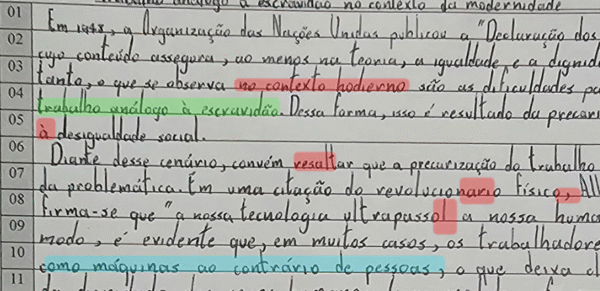 trabalho análogo à escravidão no contexto da modernidade
01 Em 1948, a Organização das Nações Unidas publicou a "Declaração dos
02 cujo conteúdo assegura, ao menos na teoria, a igualdade e a dignid
03 tanto, o que se observa no contexto hodierno são as dificuldades pa
04 trabalho análogo à escravidão. Dessa forma, isso é resultado da precari
05 à desigualdade social.
06 Diante desse cenário, convém resaltar que a precarização do trabalho
07 da problemática. Em uma citação do revolucionario físico, Al
08 firma-se que "a nossa tecnologia ultrapassol a nossa huma
09 modo, é evidente que, em muitos casos, os trabalhadore
10 como máquinas ao contrário de pessoas, o que deixa
11